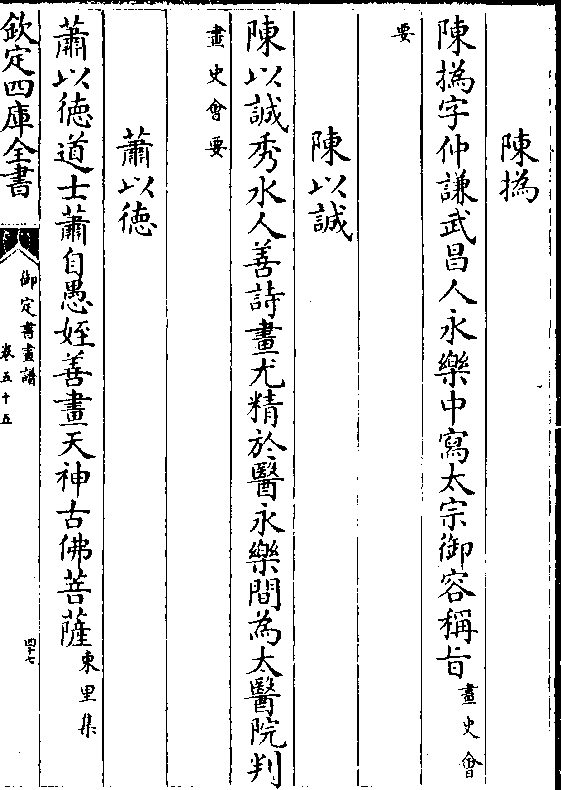 陳撝
陳撝字仲謙武昌人永樂中寫太宗御容稱旨畫史會
要
陳以誠
陳以誠秀水人善詩畫尤精於醫永樂間為太醫院判
畫史會要
蕭以徳
蕭以徳道士蕭自愚姪善畫天神古佛菩薩東里集
欽定四庫全書
御定書畫譜
卷五十五
四十七